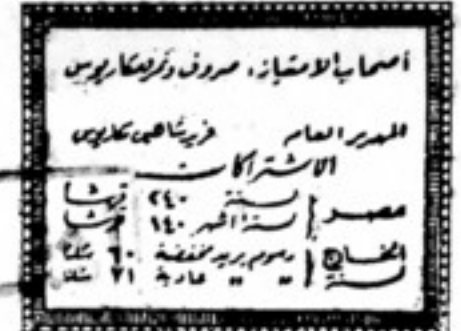 أصحاب الامتياز: صروف ونمر ومكاريوس
المدير العام فريد شاهين مكاريوس
الاشتراكات
مصر سنة ٢٤٠ قرشا
ستة أشهر ١٤٠ قرشا
الخارج رسوم بريد مخفضة ٦٠ شلنا
سنة " " عادية ٧١ شلنا